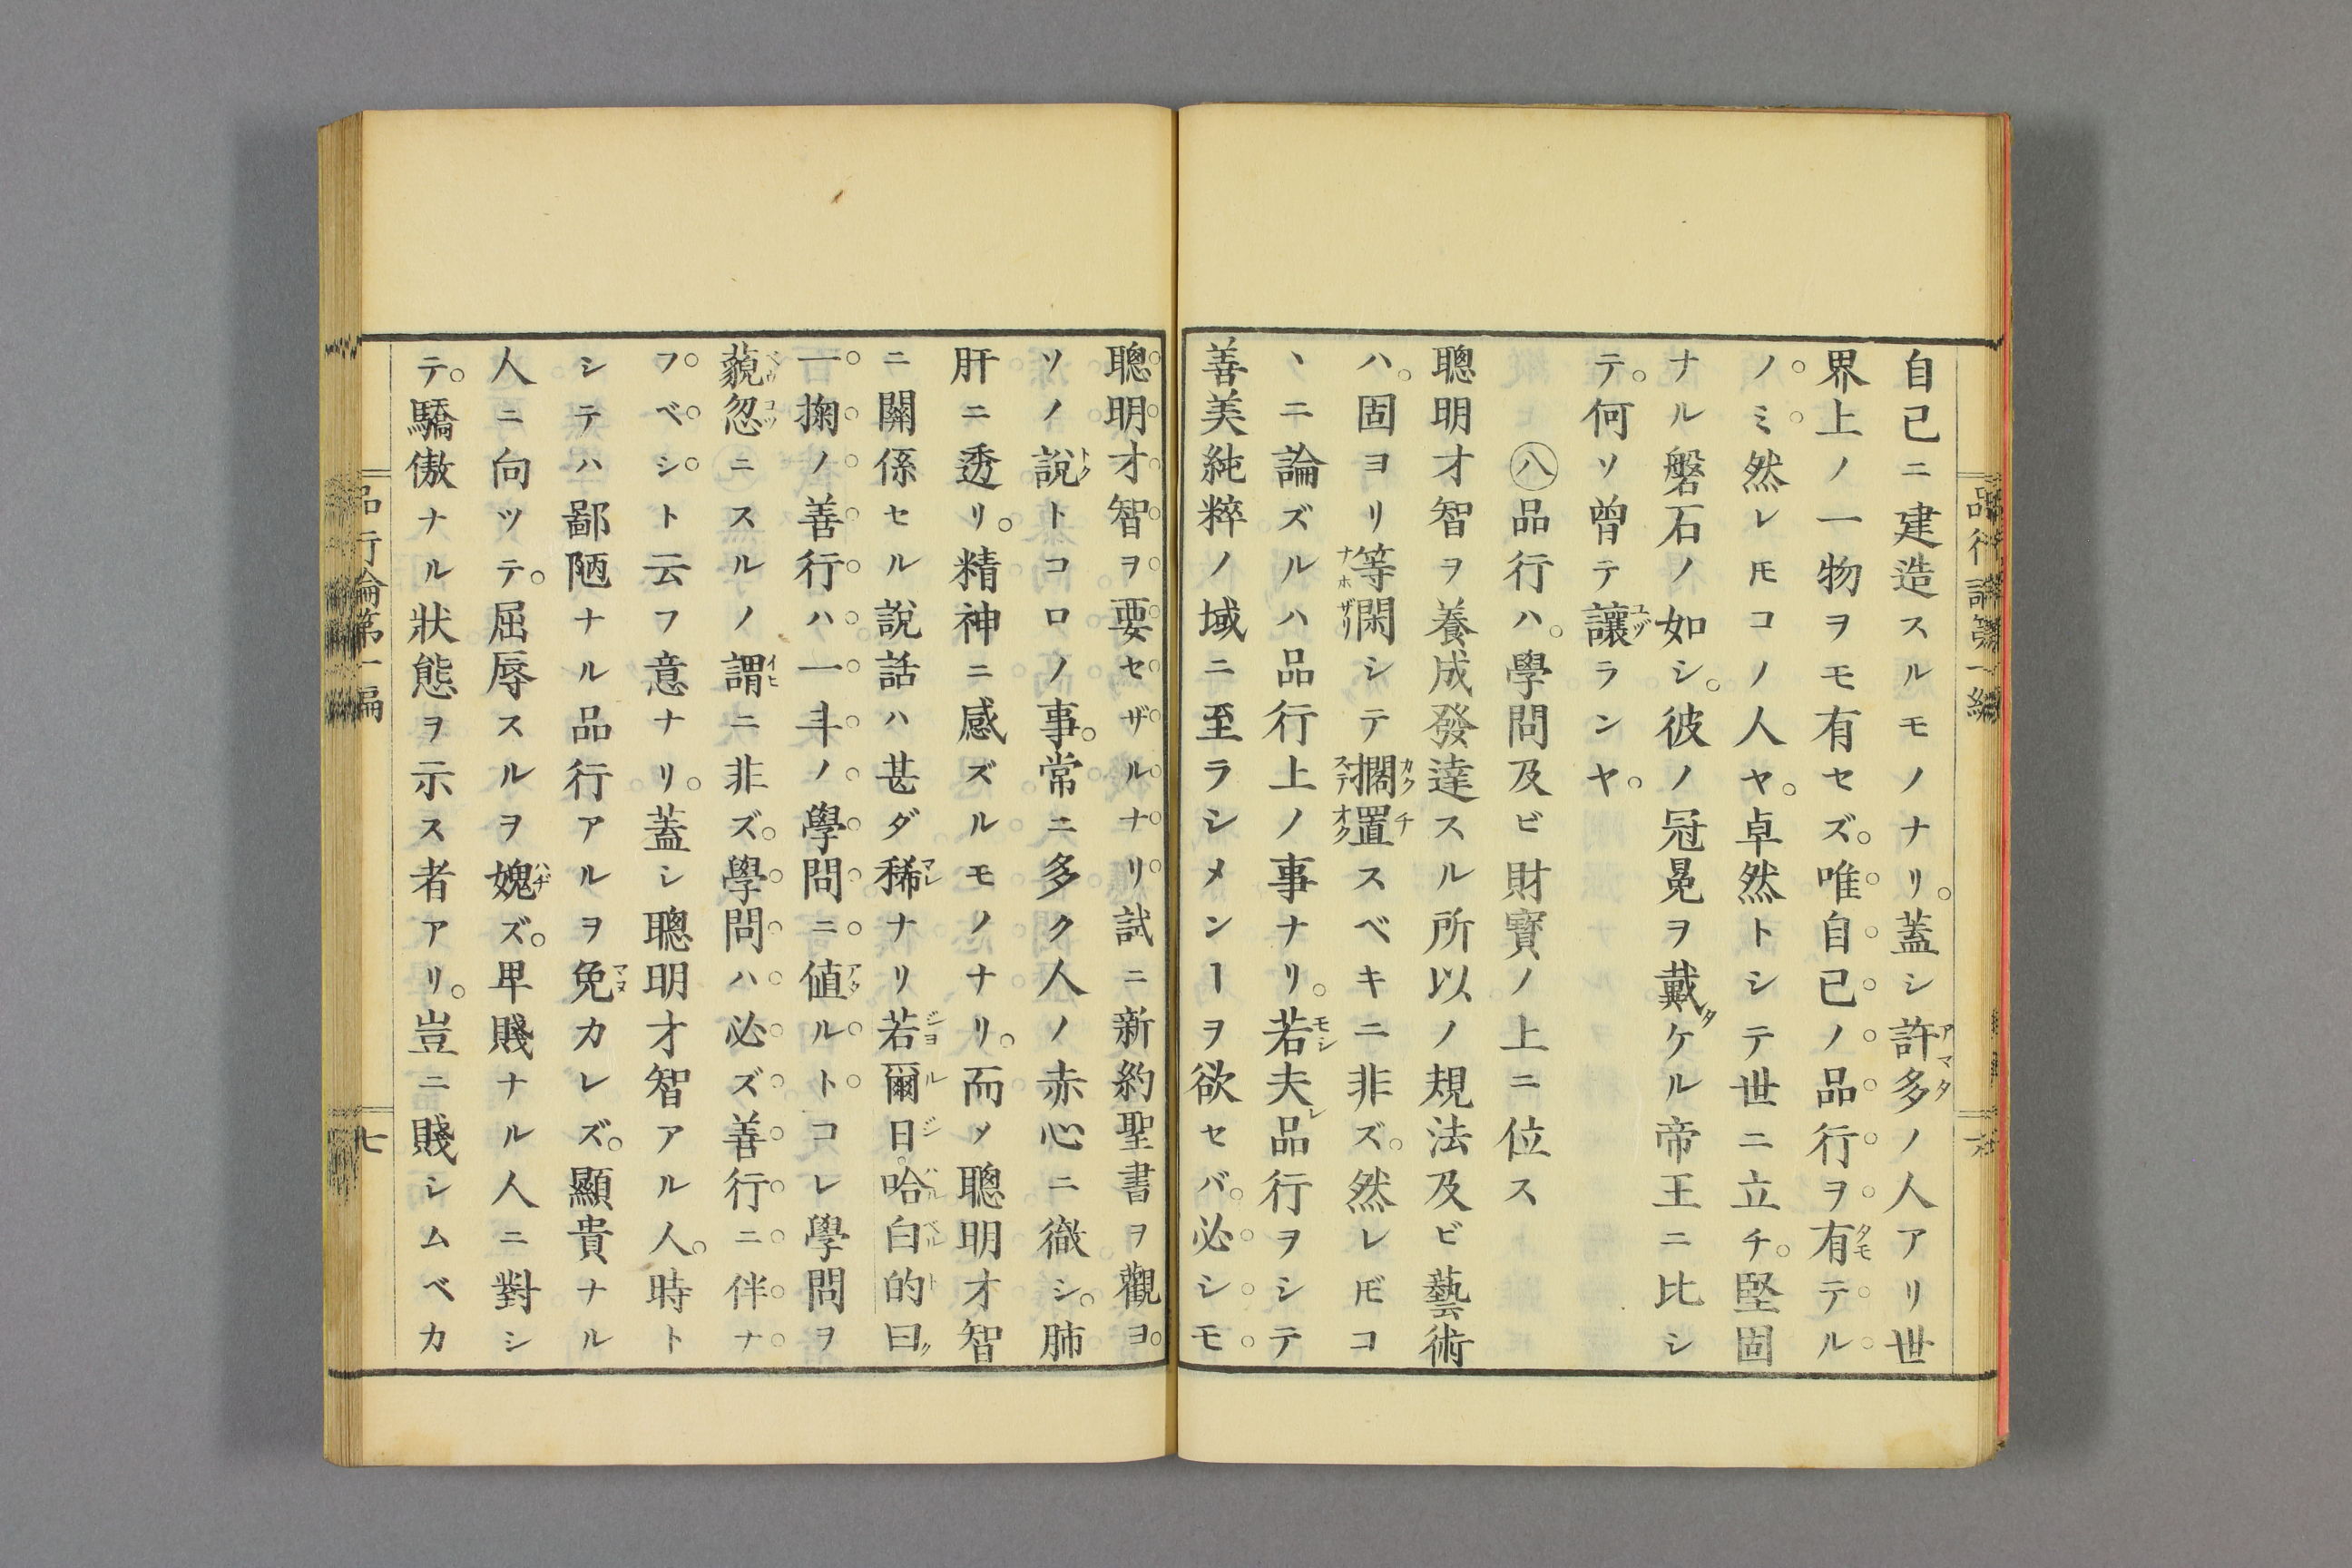 自己ニ建造スルモノナリ。蓋シ許多ノ人アリ世
界上ノ一物ヲモ有セズ。唯自己ノ品行ヲ有テル
ノミ然レ𪜈コノ人ヤ。卓然トシテ世ニ立チ。堅固
ナル磐石ノ如シ。彼ノ冠冕ヲ戴ケル帝王ニ比シ
テ。何ソ曾テ讓ランヤ。
㊇品行ハ。學問及ビ財寳ノ上ニ位ス
聰明才智ヲ養成發達スル所以ノ規法及ビ藝術
ハ。固ヨリ等閑シテ擱置スベキニ非ズ。然レ𪜈コ
ヽニ論ズルハ品行上ノ事ナリ。若夫品行ヲシテ
善美純粹ノ域ニ至ラシメンーヲ欲セバ。必シモ
聰明才智ヲ要セザルナリ試ニ新約聖書ヲ觀ヨ。
ソノ說トコロノ事。常ニ多ク人ノ赤心ニ徹シ。肺
肝ニ透リ。精神ニ感ズルモノナリ。而メ聰明才智
ニ關係セル說話ハ甚ダ稀ナリ若爾日。哈白的曰
一掬ノ善行ハ一斗ノ學問ニ値ルトコレ學問ヲ
藐忽ニスルノ謂ニ非ズ。學問ハ必ズ善行ニ伴ナ
フベシト云フ意ナリ。蓋シ聰明才智アル人。時ト
シテハ鄙陋ナル品行アルヲ免カレズ。顯貴ナル
人ニ向ツテ。屈辱スルヲ媿ズ。卑賤ナル人ニ對シ
テ。驕傲ナル狀態ヲ示ス者アリ。豈ニ賤シムベカ
品行論第一編
七